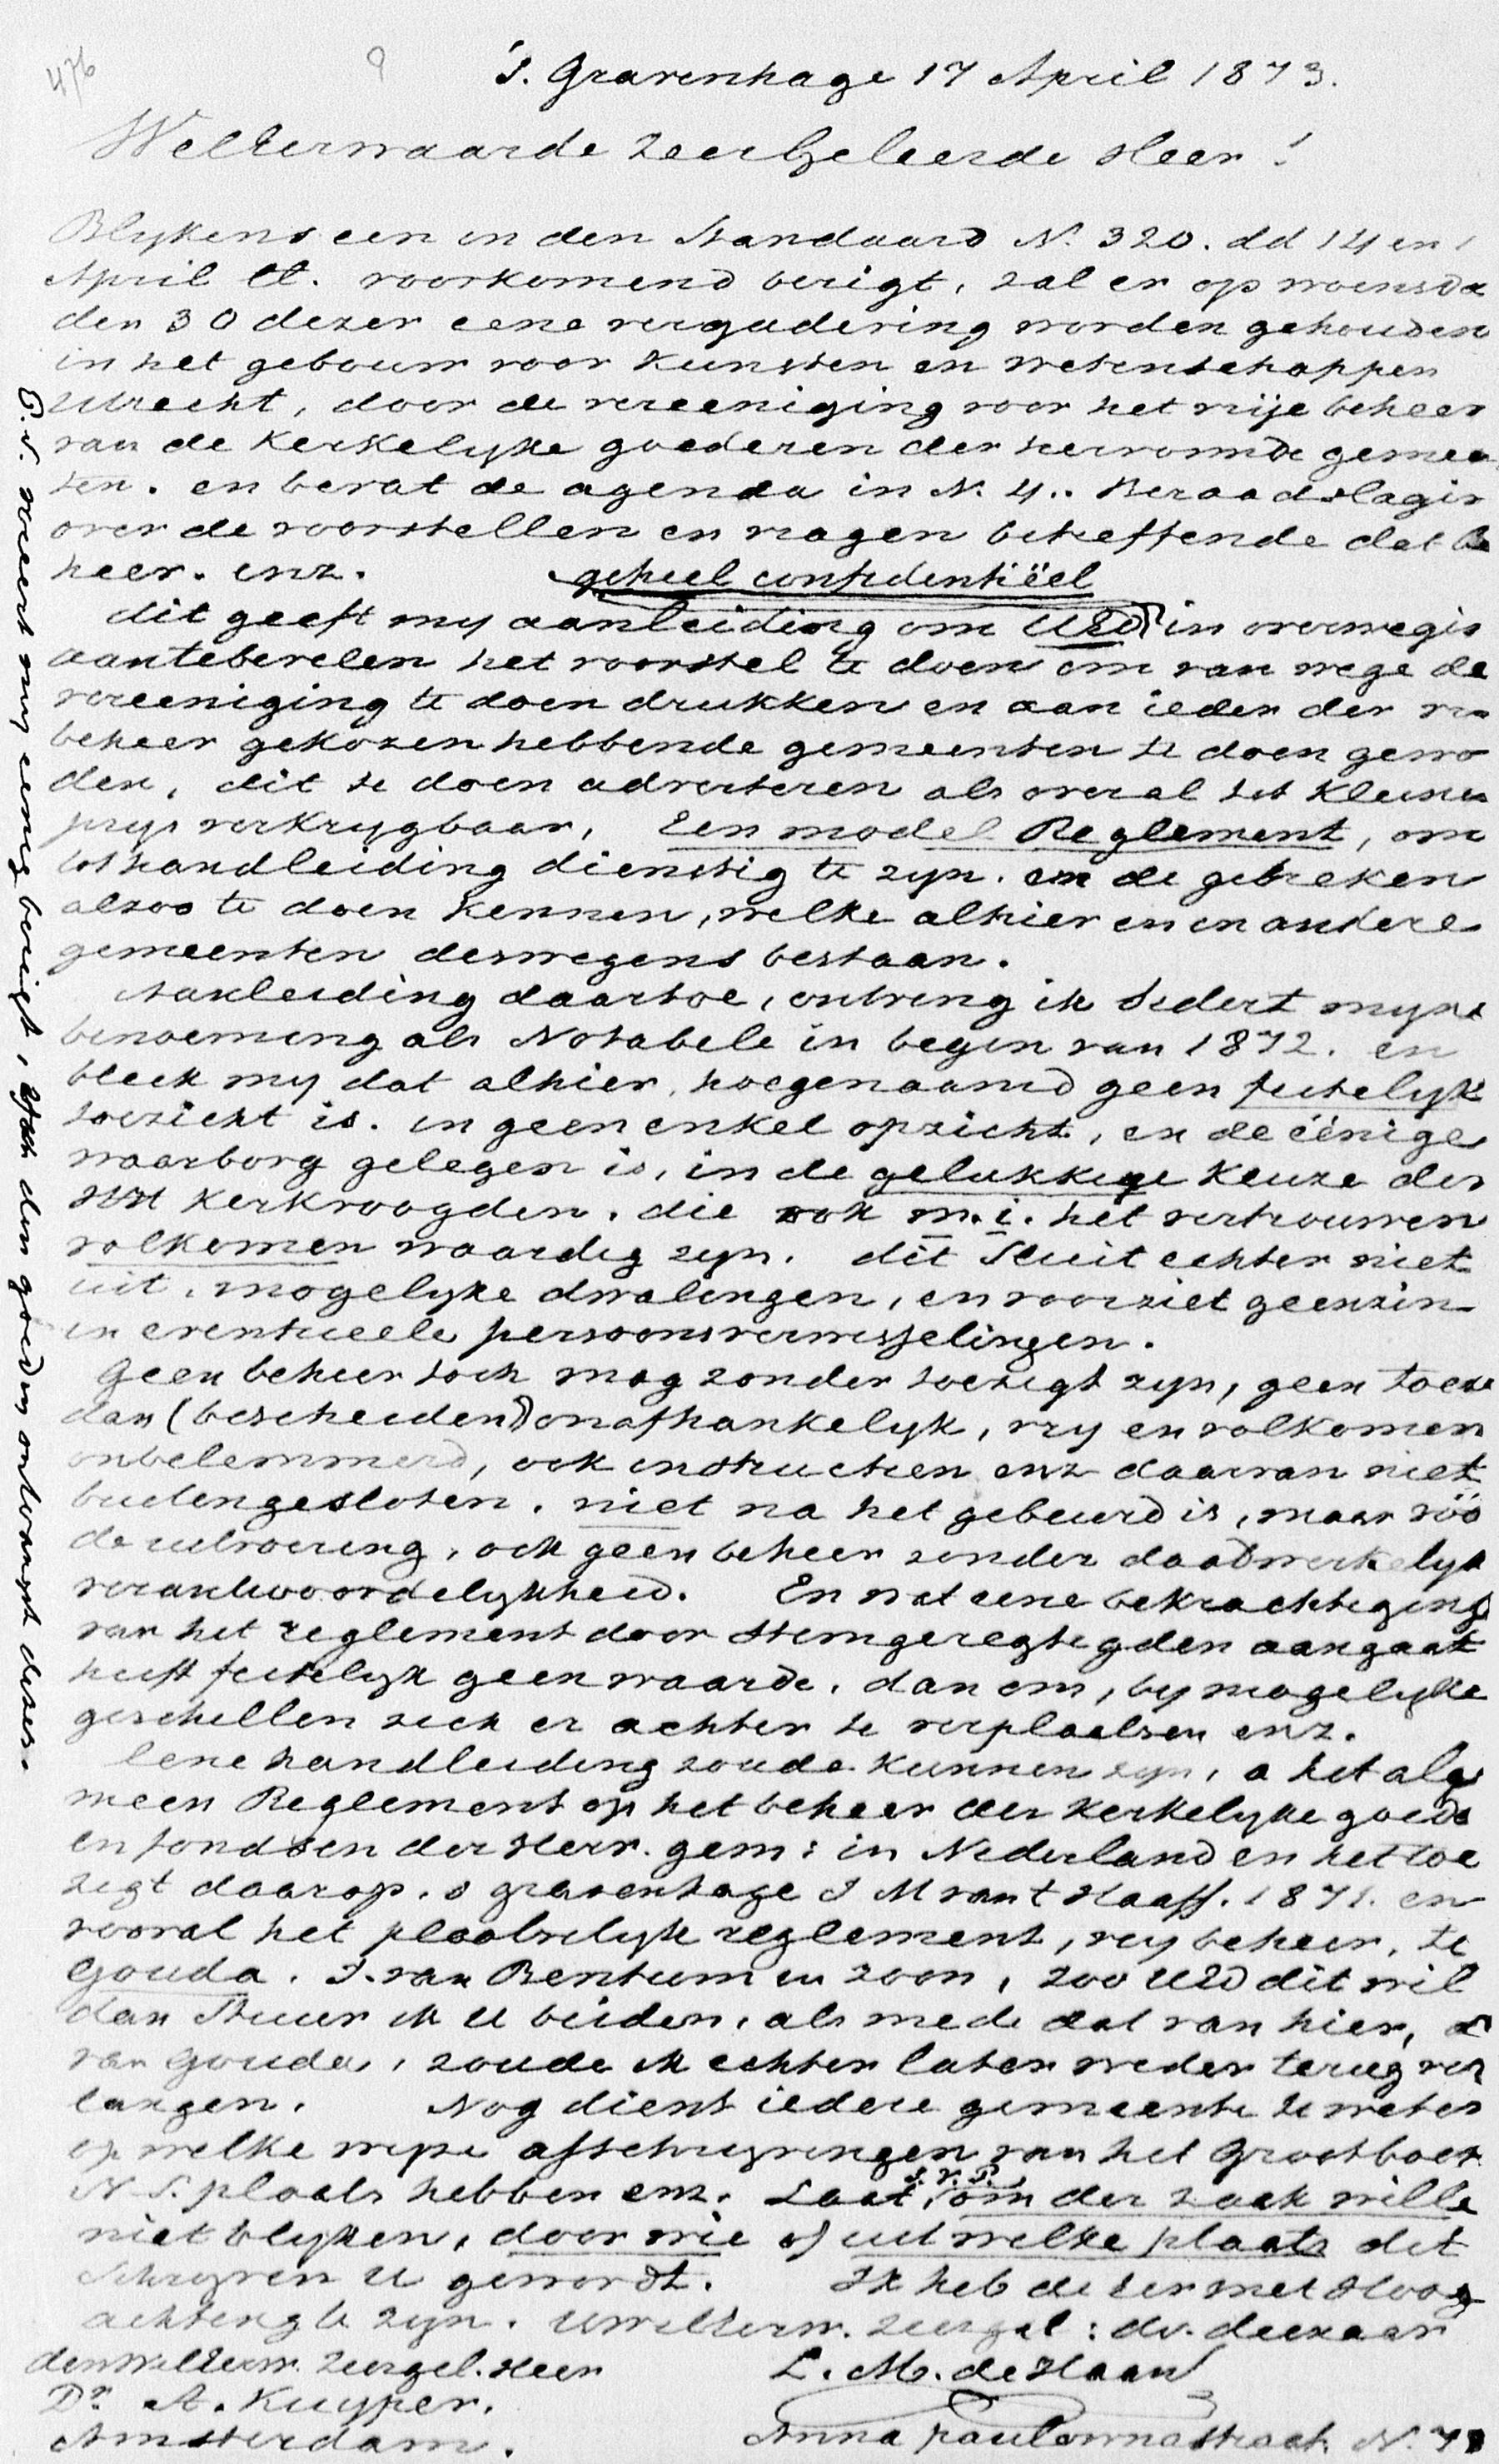 476
9
's. Gravenhage 17 April 1873.
WelEerwaarde ZeerGeleerde Heer!
Blykens een in den Standaard No. 320. dd 14 en 1
April ll. voorkomend berigt, zal er op woensda
den 30 dezer eene vergadering worden gehouden
in het gebouw voor Kunsten en wetenschappen
Utrecht, door de vereeniging voor het vrije beheer
van de Kerkelyke goederen der hervormde gemee
ten. en bevat de agenda in N. 4.. Beraadslagin
over de voorstellen en vragen betreffende dat be
heer. enz.
geheel confidentiëel
dit geeft my aanleiding om UEd in overwegin
aantebevelen het voorstel te doen om van wege de
vereeniging te doen drukken en aan ieder der vry
beheer gekozen hebbende gemeenten te doen gewo
den, dit te doen adverteren als overal tot kleinen
prys verkrygbaar, Een model Reglement, om
tot handleiding dienstig te zyn. en de gebreken
alzoo te doen kennen, welke alhier en in andere
gemeenten deswegens bestaan.
Aanleiding daartoe, ontving ik sedert myne
benoeming als Notabele in begin van 1872. en
bleek my dat alhier, hoegenaamd geen feitelyk
toezicht is. in geen enkel opzicht, en de éénige
waarborg gelegen is, in de gelukkige keuze der
HH Kerkvoogden. die ook m.i. het vertrouwen
volkomen waardig zyn. dit sluit echter niet
uit, mogelyke dwalingen, en voorziet geenzin
in eventueele persoonsverwisselingen.
Geen beheer toch mag zonder toezigt zyn, geen toezi
dan (bescheiden) onafhankelyk, vry en volkomen
onbelemmerd, ook instructien enz daarvan niet
buitengesloten. niet na het gebeurd is, maar vóó
de uitvoering, ook geen beheer zonder daadwerkelyk
verantwoordelykheid. En wat eene bekrachtiging
van het reglement door stemgeregtigden aangaat
heeft feitelyk geen waarde, dan om, by mogelyke
geschillen zich er achter te verplaatsen enz.
Eene handleiding zoude kunnen zyn, a het alge
meen Reglement op het beheer der Kerkelyke goede
en fondsen der Herv. gem: in Nederland en het toe
zigt daarop. s gravenhage J M van t Haaff. 1871. en
vooral het plaatselyk reglement, vry beheer, te
Gouda. J. van Bentum en zoon, zoo UEd dit wil
dan stuur ik U beiden, als mede dat van hier,
van Gouda, zoude ik echter later weder terug ver
langen. Nog dient iedere gemeente te weten
op welke wyze afschryvingen van het Grootboek
N S. plaats hebben enz. Laat, s.v.p., om der zaak wille
niet blyken, door wie of uit welke plaats dit
schryven U geword t. Ik heb de eer met Hoog
achting te zyn. UwelEerw. zeergel: dv. dienaar
den WelEerw. Zeergel. Heer
L. M. de Haan
Dr. A. Kuyper.
Amsterdam.
Anna paulownastraat N. 78
P.S. wreest my eenig berigt, of den goeden ontvangst dezes.